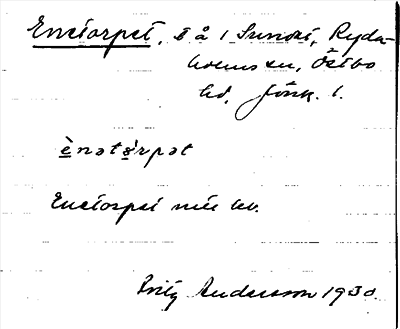 Enetorpet, t å 1 Sunds, Ryda-
holms sn, Östbo
hd, Jönk. l.
ènətò̤rpət
Enetorpet nul hd.
Fritz Andersson 1930.